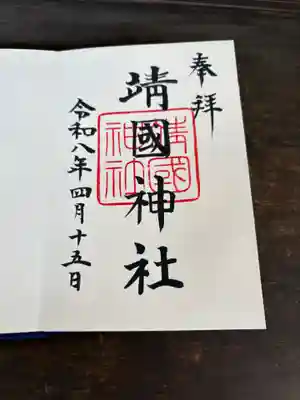 奉拝
靖國神社
靖國
神社
令和八年四月十五日